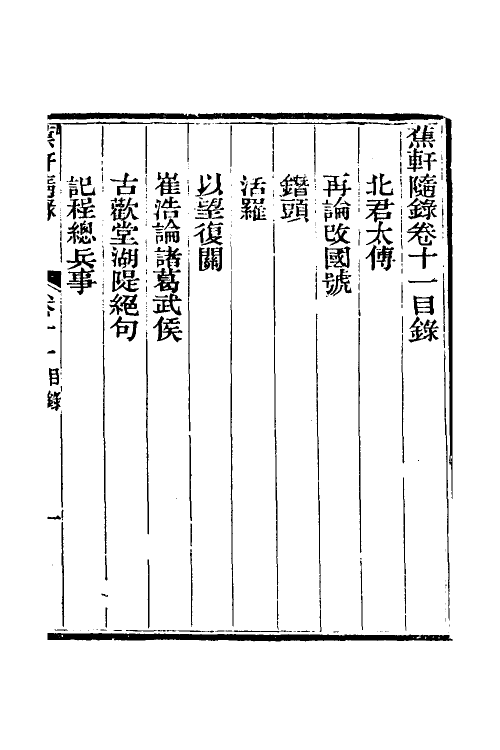 蕉軒隨錄卷十一目錄
北君太傅
再論改國號
鐕頭
活羅
以望復關
崔浩論諸葛武侯
古歡堂湖隄絕句
記程總兵事
蕉軒隨錄 卷十一目錄 一